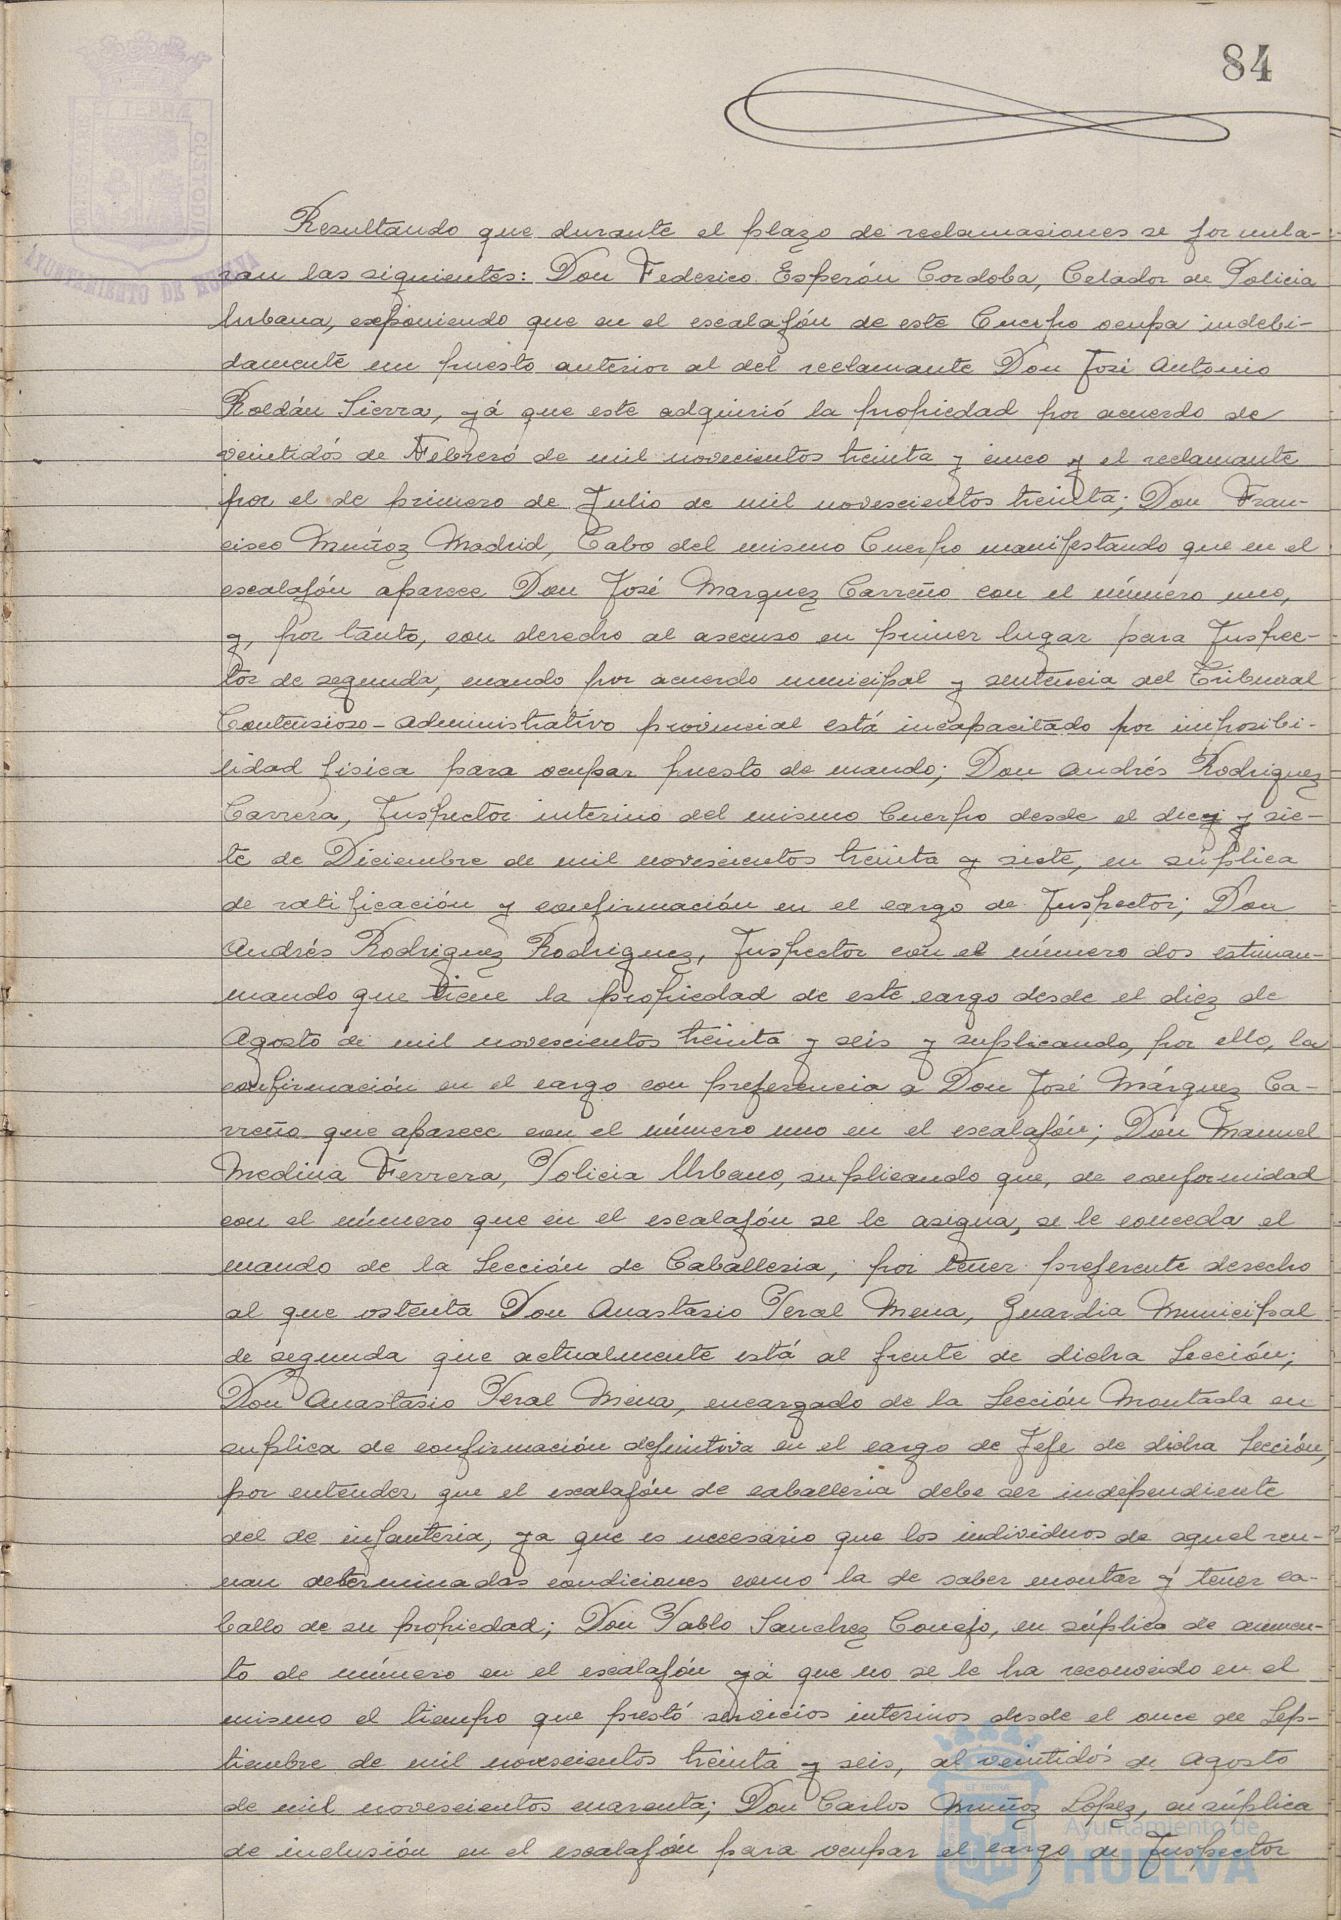 84
PORTUS MARIS
ET TERRÆ
CUSTODIA
AYUNTAMIENTO DE HUELVA
Resultando que durante el plazo de reclamaciones se formula-
ran las siguientes: Don Federico Esperón Cordoba, Celador de Policia
Urbana, exponiendo que en el escalafón de este Cuerpo ocupa indebi-
damente un puesto anterior al del reclamante Don José Antonio
Roldán Sierra, yá que este adquirió la propiedad por acuerdo de
veintidós de Febrero de mil novecientos treinta y cinco y el reclamante
por el de primero de Julio de mil novescientos treinta; Don Fran-
cisco Muñoz Madrid, Cabo del mismo Cuerpo manifestando que en el
escalafón aparece Don José Marquez Carreño con el número uno,
y, por tanto, con derecho al ascenso en primer lugar para Inspec-
tor de segunda, cuando por acuerdo municipal y sentencia del Tribunal
Contensioso-administrativo provincial está incapacitado por imposibi-
lidad fisica para ocupar puesto de mando; Don Andrés Rodriguez
Carrera, Inspector interino del mismo Cuerpo desde el diez y sie-
te de Diciembre de mil novescientos treinta y siete, en súplica
de ratificación y confirmación en el cargo de Inspector; Don
Andrés Rodriguez Rodriguez, Inspector con el número dos estiman-
mando que tiene la propiedad de este cargo desde el diez de
Agosto de mil novescientos treinta y seis y suplicando, por ello, la
confirmación en el cargo con preferencia a Don José Márquez Ca-
rreño que aparece con el número uno en el escalafón; Don Manuel
Medina Ferrera, Policia Urbano, suplicando que, de conformidad
con el número que en el escalafón se le asigna, se le conceda el
mando de la Sección de Caballeria, por tener preferente derecho
al que ostenta Don Anastasio Peral Mena, Guardia Municipal
de segunda que actualmente está al frente de dicha Sección;
Don Anastasio Peral Mena, encargado de la Sección Montada en
suplica de confirmación definitiva en el cargo de Jefe de dicha Sección,
por entender que el escalafón de caballeria debe ser independiente
del de infanteria, ya que es necesario que los individuos de aquel reu-
nan determinadas condiciones como la de saber montar y tener ca-
ballo de su propiedad; Don Pablo Sanchez Conejo, en súplica de aumen-
to de número en el escalafón yá que no se le ha reconocido en el
mismo el tiempo que prestó servicios interinos desde el once de Sep-
tiembre de mil novescientos treinta y seis, al veintidós de Agosto
de mil novescientos cuarenta; Don Carlos Muñoz Lopez, en súplica
de inclusión en el escalafón para ocupar el cargo de Inspector
Ayuntamiento de
HUELVA